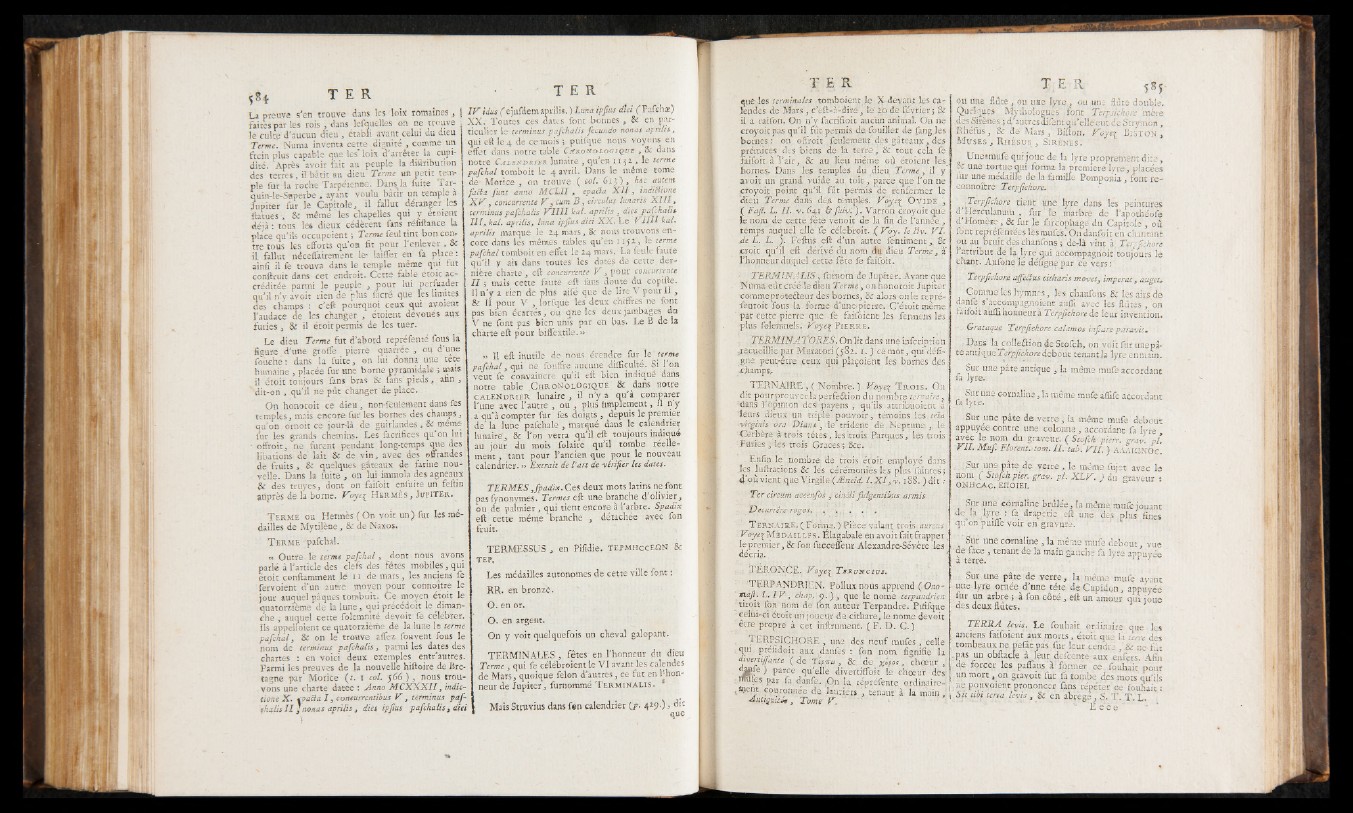 584 TER TER
La preuve s'en trouve dans les loix romaines,
faites par les rois, dans lesquelles on ne trouve
le culte d'aucun dieu, établi avant celui du dieu
Terme. Numa inventa cette dignité, comme un
frein plus capable que les loix d'arrêter la cupi-
dité. Après avoir fait au peuple la distribution
des terres, il bâtit au dieu Terme un petit tem-
ple sur la roche Tarpéienne. Dans la suite Tar-
quin-le-Superbe, ayant voulu bâtir un temple à
Jupiter sur le Capitole, il fallut déranger les
statues, & même les chapelles qui y étoient
déjà : tous les dieux cédèrent sans résistance la
place qu'ils occupoient ; Terme seul tint bon con-
tre tous les efforts qu'on fit pour l'enlever, &
il fallut nécessairement le laisser en sa place :
ainsi il se trouva dans le temple même qui fut
construit dans cet endroit. Cette fable étoit ac-
créditée parmi le peuple, pour lui persuader
qu'il n'y avoit rien de plus sacré que les limites
des champs ; c'est pourquoi ceux qui avoient
l'audace de les changer, étoient dévoués aux
furies, & il étoit permis de les tuer.
Le dieu Terme fut d'abord représenté sous la
figure d'une grosse pierre quarrée, ou d'une
souche : dans la suite, on lui donna une tête
humaine, placée sur une borne pyramidale ; mais
il étoit toujours sans bras & sans pieds, afin,
dit-on, qu'il ne pût changer de place.
On honoroit ce dieu, non-seulement dans ses
temples, mais encore sur les bornes des champs,
qu'on ornoit ce jour-là de guirlandes, & même
sur les grands chemins. Les sacrifices qu'on lui
offroit, ne furent pendant long-temps que des
libations de lait & de vin, avec des offrandes
de fruits, & quelques gâteaux de farine nou-
velle. Dans la suite, on lui immola des agneaux
& des truyes, dont on faisoit ensuite un festin
auprès de la borne. Voyez HERMÈS, JUPITER.
TERME ou Hermès (On voit un) sur les mé-
dailles de Mytilène, & de Naxos.
TERME paschal.
» Outre le terme paschal, dont nous avons
parlé à l'article des clefs des fêtes mobiles, qui
étoit constamment le 11 de mars, les anciens se
servoient d'un autre moyen pour connoître le
jour auquel pâques tomboit. Ce moyen étoit le
quatorzième de la lune, qui précédoit le diman-
che, auquel cette solemnité devoit se célébrer.
Ils appelloient ce quatorzième de la lune le terme
paschal, & on le trouve assez souvent sous le
nom de terminus paschalis, parmi les dates des
chartes : en voici deux exemples entr'autres.
Parmi les preuves de la nouvelle histoire de Bre-
tagne par Morice (t. 1 col. 566), nous trou-
vons une charte datée : Anno MCXXXII, indic-
tione X, epacta I, concurrentibus V, terminus pas-
chalis II nonas aprilis, dies ipsius paschalis, diei
IV idus (ejusdem aprilis.) Luna ipsius diei (Paschæ)
XX. Toutes ces dates sont bonnes, & en par-
ticulier le terminus paschalis secundo nonas aprilis,
qui est le 4 de ce mois ; puisque nous voyons en
effet dans notre table CHRONOLOGIQUE, & dans
notre CALENDRIER lunaire, qu'en 1132, le terme
paschal tomboit le 4 avril. Dans le même tome
de Morice, on trouve (col. 615), hæc autem
facta sunt anno MCLII, epacta XII, indictione
XV, concurrente V, cum B, circulus lunaris XIII,
terminus paschalis VIIII kal. aprilis, dies paschalis
III, kal. aprilis, luna ipsius diei XX. Le VIIII kal.
aprilis marque le 24 mars, & nous trouvons en-
core dans les mêmes tables qu'en 1152, le terme
paschal tomboit en effet le 24 mars. La seule faute
qu'il y ait dans toutes les dates de cette der-
nière charte, est concurrente V, pour concurrente
II ; mais cette faute est sans doute du copiste.
Il n'y a rien de plus aisé que de lire V pour II,
& II pour V, lorsque les deux chiffres ne sont
pas bien écartés, ou que les deux jambages du
V ne sont pas bien unis par en bas. Le B de la
charte est pour bissextile. »
» Il est inutile de nous étendre sur le terme
paschal, qui ne souffre aucune difficulté. Si l'on
veut se convaincre qu'il est bien indiqué dans
notre table CHRONOLOGIQUE & dans notre
CALENDRIER lunaire, il n'y a qu'à comparer
l'une avec l'autre, ou, plus simplement, il n'y
a qu'à compter sur ses doigts, depuis le premier
de la lune paschale, marqué dans le calendrier
lunaire, & l'on verra qu'il est toujours indiqué
au jour du mois solaire qu'il tombe réelle-
ment, tant pour l'ancien que pour le nouveau
calendrier. » Extrait de l'art de vérifier les dates.
TERMES, spadix. Ces deux mots latins ne sont
pas synonymes. Termes est une branche d'olivier,
ou de palmier, qui tient encore à l'arbre. Spadix
est cette même branche, détachée avec son
fruit.
TERMESSUS, en Pisidie. ΤΕΡΜΗCCΕΩΝ &
ΤΕΡ.
Les médailles autonomes de cette ville sont :
RR. en bronze.
O. en or.
O. en argent.
On y voit quelquefois un cheval galopant.
TERMINALES, fêtes : en l'honneur du dieu
Terme, qui se célébroient le VI avant les calendes
de Mars, quoique selon d'autres, ce fut en l'hon-
neur de Jupiter, surnommé TERMINALIS.
Mais Struvius dans son calendrier (p. 429.), dit
que
TER TER 585
que les terminales tomboient le X devant les ca-
lendes de Mars, c'est-à-dire, le 20 de février ; &
il a raison. On n'y sacrifioit aucun animal. On ne
croyoit pas qu'il fût permis de souiller de sang les
bornes : on offroit seulement des gâteaux, des
prémices des biens de la terre, & tout cela se
faisoit à l'air, & au lieu même où étoient les
bornes. Dans les temples du dieu Terme, il y
avoit un grand vuide au toît, parce que l'on ne
croyoit point qu'il fût permis de renfermer le
dieu Terme dans des temples. Voyez OVIDE,
(Fast. L. II. v. 641 & suiv.). Varron croyoit que
le nom de cette fête venoit de la fin de l'année,
temps auquel elle se célébroit. (Voy. le liv. VI.
de L. L. ). Festus est d'un autre sentiment, &
croit qu'il est dérivé du nom du dieu Terme, à
l'honneur duquel cette fête se faisoit.
TERMINALIS, surnom de Jupiter. Avant que
Numa eût créé le dieu Terme, on honoroit Jupiter
comme protecteur des bornes, & alors on le repré-
sentoit sous la forme d'une pierre. C'étoit même
par cette pierre que se faisoient les sermens les
plus solemnels. Voyez PIERRE.
TERMINATORES. On lit dans une inscription
recueillie par Muratori (582. 1.) ce mot, qui dési-
gne peut-être ceux qui plaçoient les bornes des
champs.
TERNAIRE, (Nombre.) Voyez TROIS. On
dit pour prouver la perfection du nombre ternaire,
dans l'opinion des payens, qu'ils attribuoient à
leurs dieux un triple pouvoir, témoins les tria
virginis ora Dianæ, le trident de Neptune, le
Cerbère à trois têtes, les trois Parques, les trois
Furies, les trois Graces ; &c.
Enfin le nombre de trois étoit employé dans
les lustrations & les cérémonies les plus saintes ;
d'où vient que Virgile (Æneid. l. XI, v. 188.) dit :
Ter circum accensos, cincti fulgentibus armis
Decurrere rogos. . . . . . .
TERNAIRE. (Forma.) Pièce valant trois aureus
Voyez MÉDAILLES. Elagabale en avoit fait frapper
le premier, & son successeur Alexandre-Sévère les
décria.
TERONCE. Voyez TERUNCIUS.
TERPANDRIEN. Pollux nous apprend (Ono-
mast. L. IV, chap. 9.), que le nome terpandrien
tiroit son nom de son auteur Terpandre. Puisque
celui-ci étoit un joueur de cithare, le nome devoit
être propre à cet instrument. (F. D. C.)
TERPSICHORE, une des neuf muses, celle
qui présidoit aux danses : son nom signifie la
divertissante (de Τερπω, & de χορος, chœur,
danse) parce qu'elle divertissoit le chœur des
muses par sa danse. On la représente ordinaire-
ment couronnée de lauriers, tenant à la main,
Antiquités, Tome V.
ou une flûte, ou une lyre, ou une flûte double.
Quelques Mythologues font Terpsichore mère
des Sirènes ; d'autres disent qu'elle eut de Strymon,
Rhésus, & de Mars, Biston. Voyez BISTON,
MUSES, RHÉSUS, SIRÈNES.
Une muse qui joue de la lyre proprement dite,
& une tortue qui forma la première lyre, placées
sur une médaille de la famille Pomponia, font re-
connoître Terpsichore.
Terpsichore tient une lyre dans les peintures
d'Herculanum, sur le marbre de l'apothéose
d'Homère, & sur le sarcophage du Capitole, où
sont représentées les muses. On dansoit en chantant
ou au bruit des chansons ; de-là vint à Terpsichore
l'attribut de la lyre qui accompagnoit toujours le
chant. Ausone le désigne par ce vers :
Terpsichore affectus citharis movet, imperat, auget.
Comme les hymnes, les chansons & les airs de
danse s'accompagnoient aussi avec les flûtes, on
faisoit aussi honneur à Terpsichore de leur invention.
Grataque Terpsichore calamos inflare paravit.
Dans la collection de Stosch, on voit sur une pâ-
te antique Terpsichore debout tenant la lyre en main.
Sur une pâte antique, la même muse accordant
sa lyre.
Sur une cornaline, la même muse assise accordant
sa lyre.
Sur une pâte de verre, la même muse debout
appuyée contre une colonne, accordant sa lyre,
avec le nom du graveur. (Stosch pierr. grav. pl.
VII. Mus. Florent. tom. II. tab. VII.) ΑΛΛΙΩΝΟC.
Sur une pâte de verre, le même sujet avec le
nom (Stosch pier. grav. pl. XLV.) du graveur :
ΟΝΗCΑC. ΕΠΟΙΕΙ.
Sur une cornaline brûlée, la même muse jouant
de la lyre : sa draperie est une des plus fines
qu'on puisse voir en gravure.
Sur une cornaline, la même muse debout, vue
de face, tenant de la main gauche sa lyre appuyée
à terre.
Sur une pâte de verre, la même muse ayant
une lyre ornée d'une tête de Cupidon, appuyée
sur un arbre ; à son côté, est un amour qui joue
des deux flûtes.
TERRA levis. Le souhait ordinaire que les
anciens faisoient aux morts, étoit que la terre des
tombeaux ne pesât pas sur leur cendre, & ne fût
pas un obstacle à leur descente aux enfers. Afin
de forcer les passans à former ce souhait pour
un mort, on gravoit sur sa tombe des mots qu'ils
ne pouvoient prononcer sans répéter ce souhait :
Sit tibi terra levis, & en abrégé, S. T. T. L.
Eeee